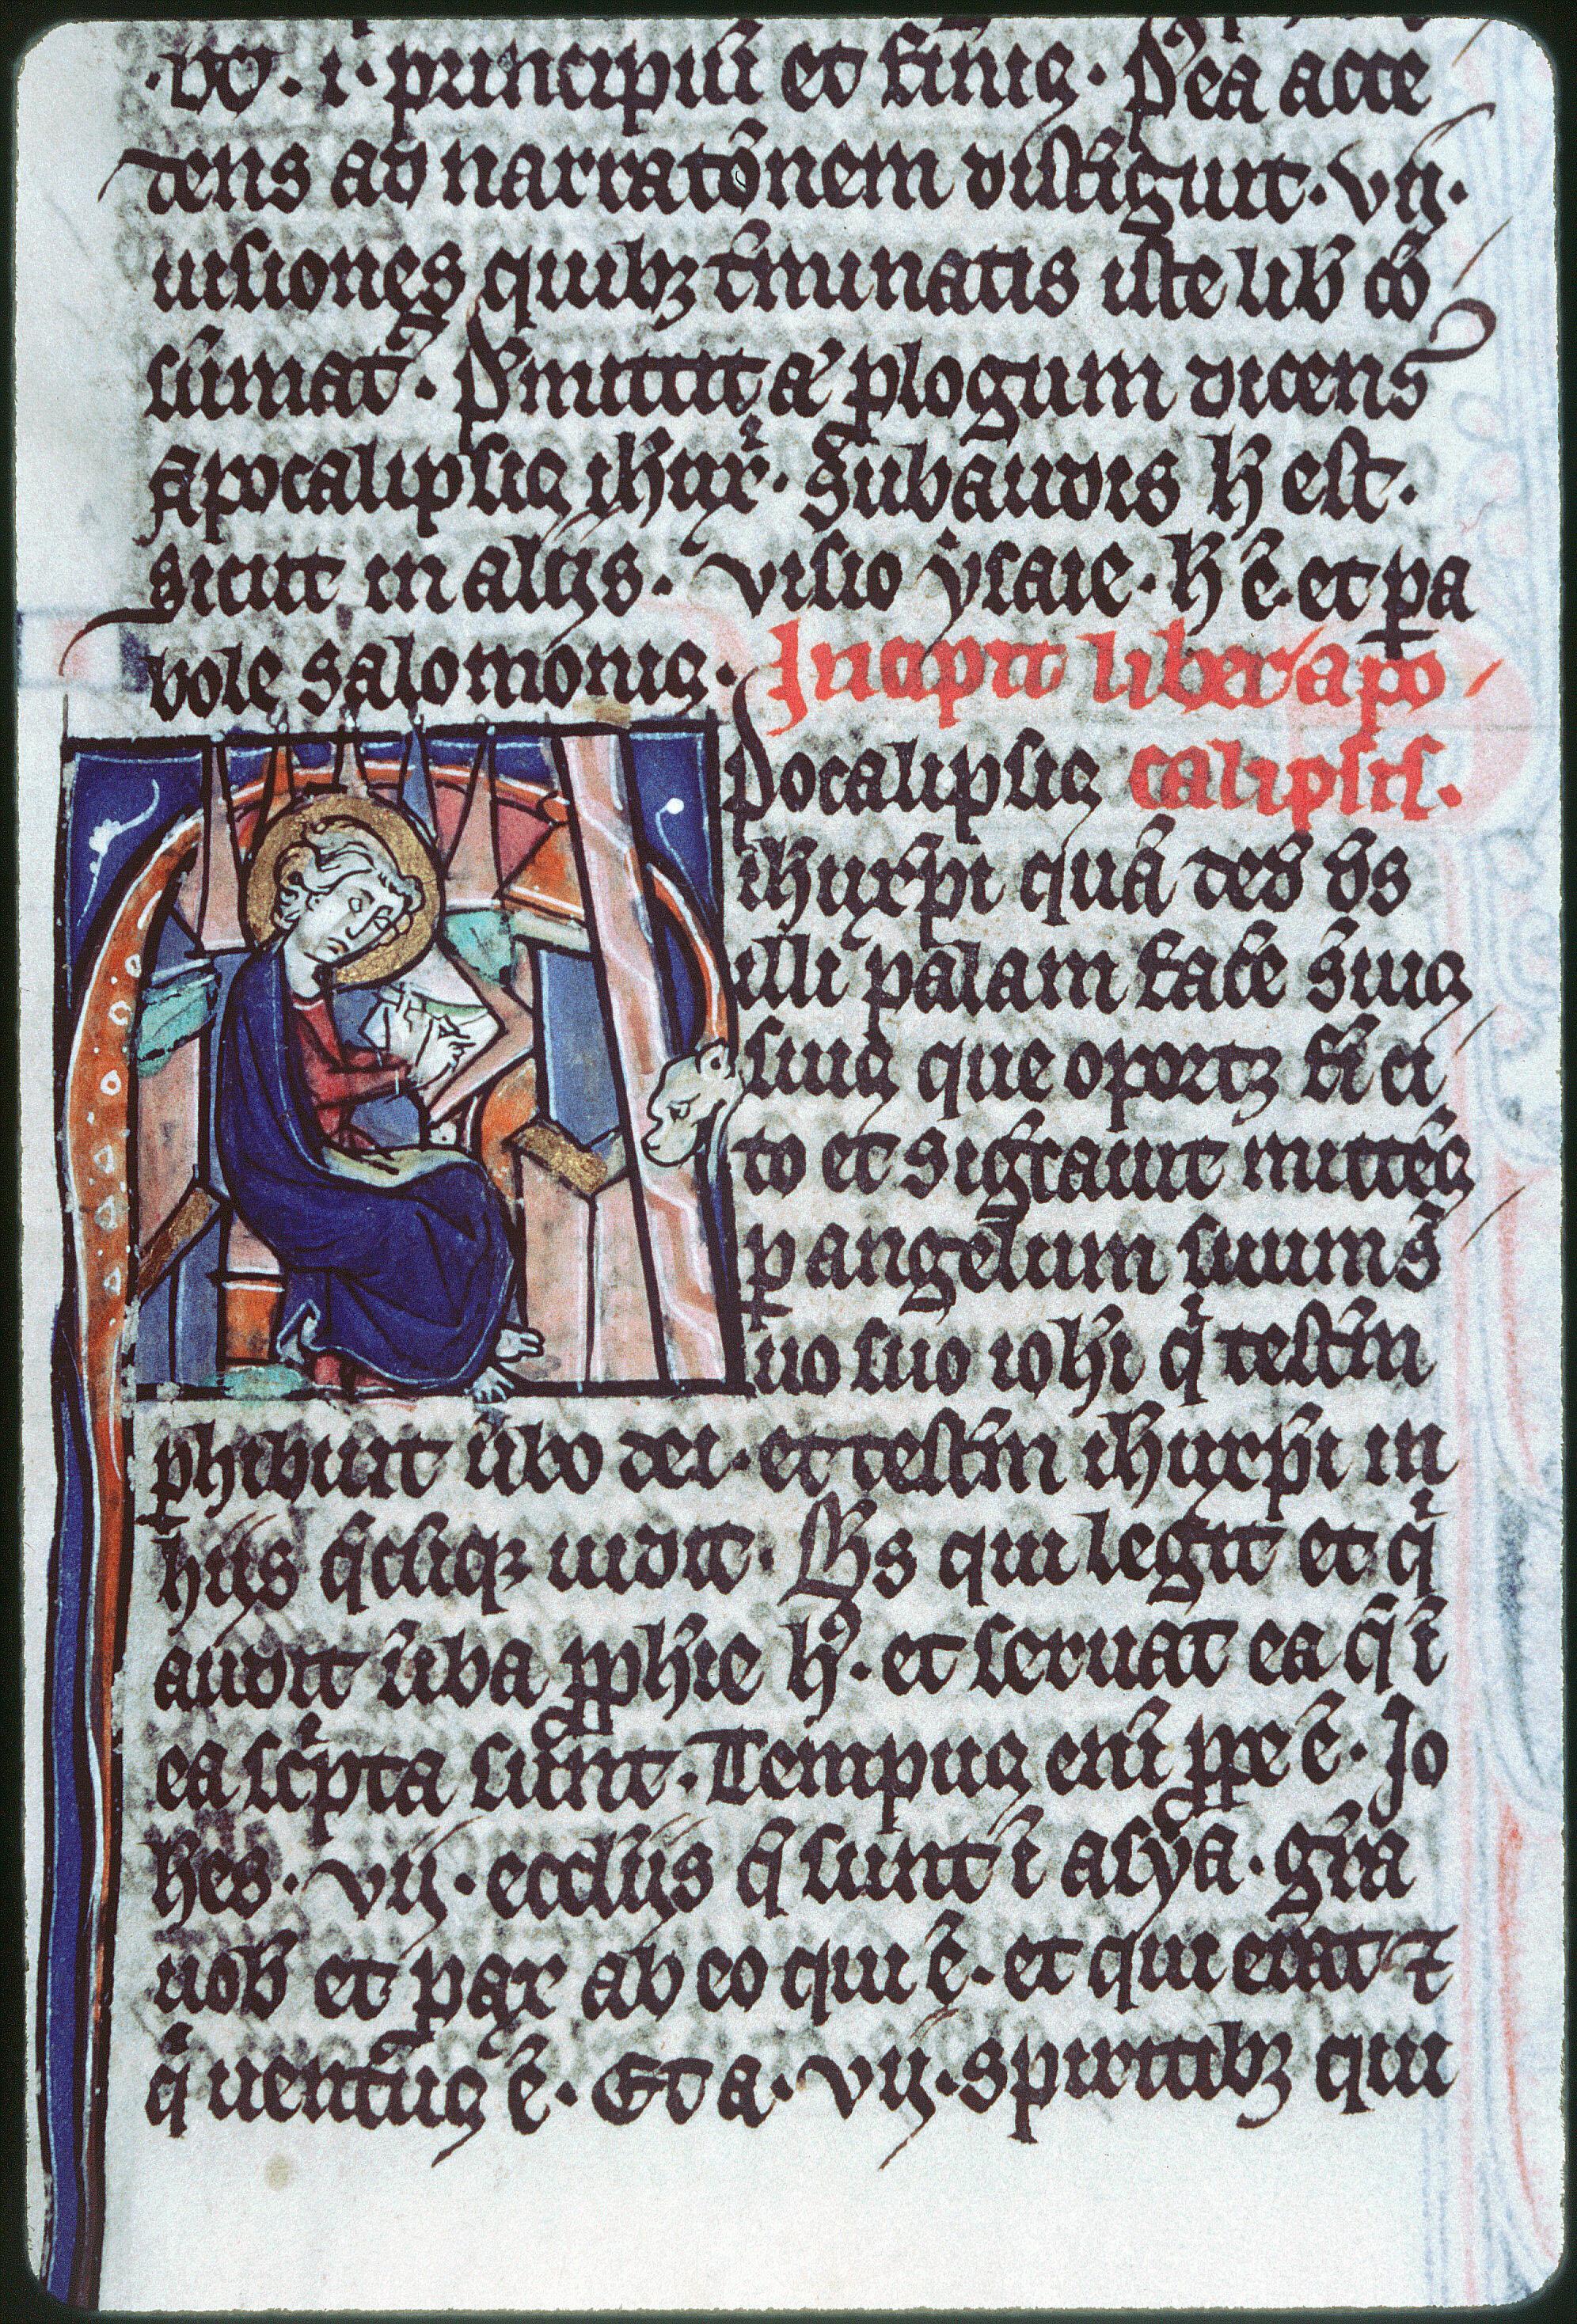 .vo. i. principiū et finis. Postea acce
dens ad narratōnem distīguit. vij.
uisiones quibꝫ t̄minatis iste lib̄ cō
sūmat᷑. P̄mittit aū ꝓlogum dicens
Apocalipsis ihu xp̄i. Subaudis h̄ est.
sicut in alijs. visio ysaie. h̄ ē. et ꝑa
bole salomonis. Incipit liber apo
calipsis.
Apocalipsis
ihu xp̄i quā ded̄ ds̄
illi palam fac̄e s̄uis
suis que oportꝫ fi̅ ci
to et sig̅cauit mittēs
ꝑ angelum suum s̄
uo suo ioh̄i q̇ testim̄
ꝑhibuit ūbo dei. et testim̄ ihu xp̄i in
hijs q̄cūqꝫ uidit. Bt̄s qui legit et q̇
audit ūba ꝓph̄ie hꝰ. et seruat ea q̄ ī
ea scͥpta sunt. Tempus eni̅ ꝓpe ē. Jo
h̄es. vij. eccl̄ijs q̄ sunt ī asya. gr̄a
uob̄ et pax ab eo qui ē. et qui erat ⁊
q̇ uentur̄us ē. Et a. vij. spiritibꝫ qui